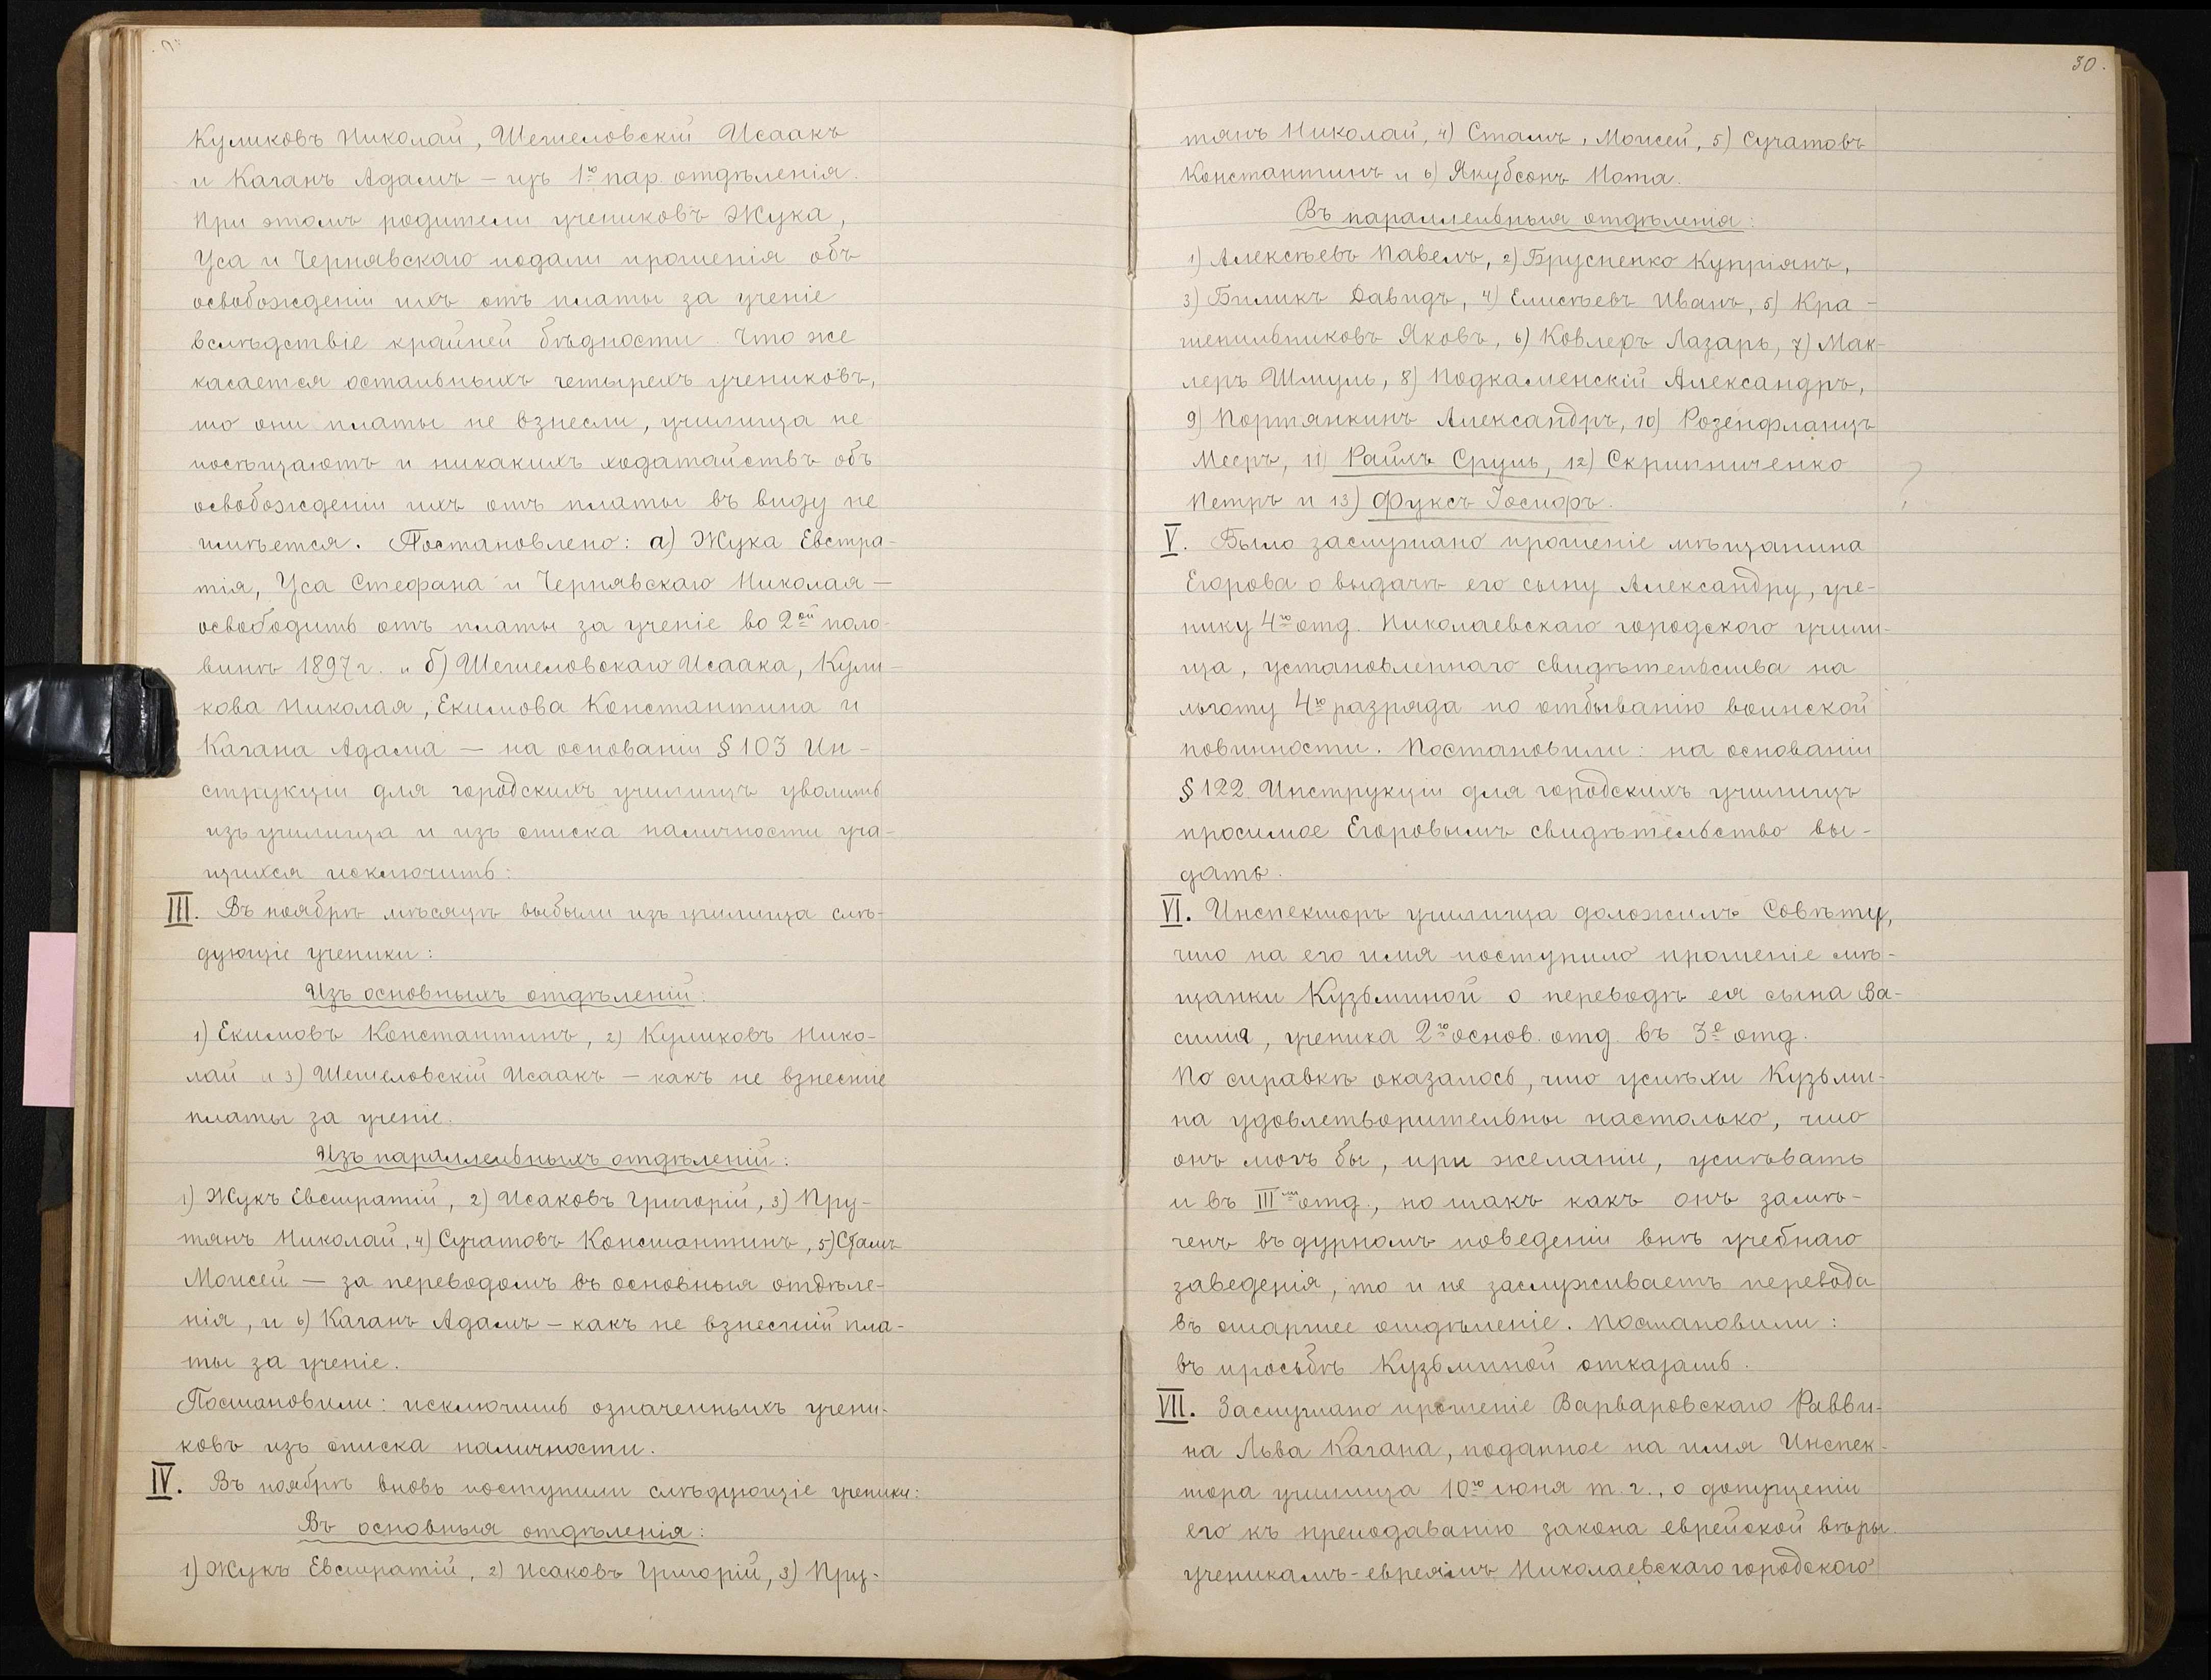 Куликовъ Николай, Шешеловскій Исаакъ
и Каганъ Адамъ – изъ 1го пар. отдѣленія.
При этомъ родители учениковъ Жука,
Уса и Чернявскаго подали прошенія объ
освобожденіи ихъ отъ платы за ученіе
вслѣдствіе крайней бѣдности. Что же
касается остальныхъ четырехъ учениковъ,
то они платы не взнесли, училища не
посѣщаютъ и никакихъ ходатайствъ объ
освобожденіи ихъ отъ платы въ виду не
имѣется. Постановлено: а) Жука Евстра-
тія, Уса Стефана и Чернявскаго Николая –
освободить отъ платы за ученіе во 2ой поло-
винѣ 1897 г. и б) Шешеловскаго Исаака, Кули-
кова Николая, Екимова Константина и
Кагана Адама – на основаніи § 103 Ин-
струкціи для городскихъ училищъ уволить
изъ училища и изъ списка наличности уча-
щихся исключить:
III. Въ ноябрѣ мѣсяцѣ выбыли изъ училища слѣ-
дующіе ученики:
Изъ основныхъ отдѣленій:
1) Екимовъ Константинъ, 2) Куликовъ Нико-
лай и 3) Шешеловскій Исаакъ – какъ не взнесшіе
платы за ученіе.
Изъ параллельныхъ отдѣленій:
1) Жукъ Евстратій, 2) Исаковъ Григорій, 3) Пру-
тянъ Николай, 4) Сучатовъ Константинъ, 5) Стамъ
Моисей – за переводомъ въ основныя отдѣле-
нія, и 6) Каганъ Адамъ – какъ не взнесшій пла-
ты за ученіе.
Постановили: исключить означенныхъ учени-
ковъ изъ списка наличности.
IV. Въ ноябрѣ вновь поступили слѣдующіе ученики:
Въ основныя отдѣленія:
1) Жукъ Евстратій, 2) Исаковъ Григорій, 3) Пру-
30.
тянъ Николай, 4) Стамъ, Моисей, 5) Сучатовъ
Константинъ и 6) Якубсонъ Нота.
Въ параллельныя отдѣленія:
1) Алексѣевъ Павелъ, 2) Бруспенко Купріянъ,
3) Биликъ Давидъ, 4) Елисѣевъ Иванъ, 5) Кра-
шенильниковъ Яковъ, 6) Ковлеръ Лазарь, 7) Мак-
леръ Шмуль, 8) Подкаменскій Александръ,
9) Портянкинъ Александръ, 10) Розенфланцъ
Мееръ, 11) Райхъ Сруль, 12) Скрипниченко
Петръ и 13) Фуксъ Іосифъ.
?
V. Было заслушано прошеніе мѣщанина
Егорова о выдачѣ его сыну Александру, уче-
нику 4го отд. Николаевскаго городского учили-
ща, установленнаго свидѣтельства на
льготу 4го разряда по отбыванію воинской
повинности. Постановили: на основаніи
§ 122 Инструкціи для городскихъ училищъ
просимое Егоровымъ свидѣтельство вы-
дать.
VI. Инспекторъ училища доложилъ Совѣту,
что на его имя поступило прошеніе мѣ-
щанки Кузьминой о переводѣ ея сына Ва-
силія, ученика 2го основ. отд. въ 3е отд.
По справкѣ оказалось, что успѣхи Кузьми-
на удовлетворительны настолько, что
онъ могъ бы, при желаніи, успѣвать
и въ IIIмъ отд., но такъ какъ онъ замѣ-
ченъ въ дурномъ поведеніи внѣ учебнаго
заведенія, то и не заслуживаетъ перевода
въ старшее отдѣленіе. Постановили:
въ просьбѣ Кузьминой отказать.
VII. Заслушано прошеніе Варваровскаго Равви-
на Льва Кагана, поданное на имя Инспек-
тора училища 10го іюня т. г., о допущеніи
его къ преподаванію закона еврейской вѣры
ученикамъ-евреямъ Николаевскаго городского